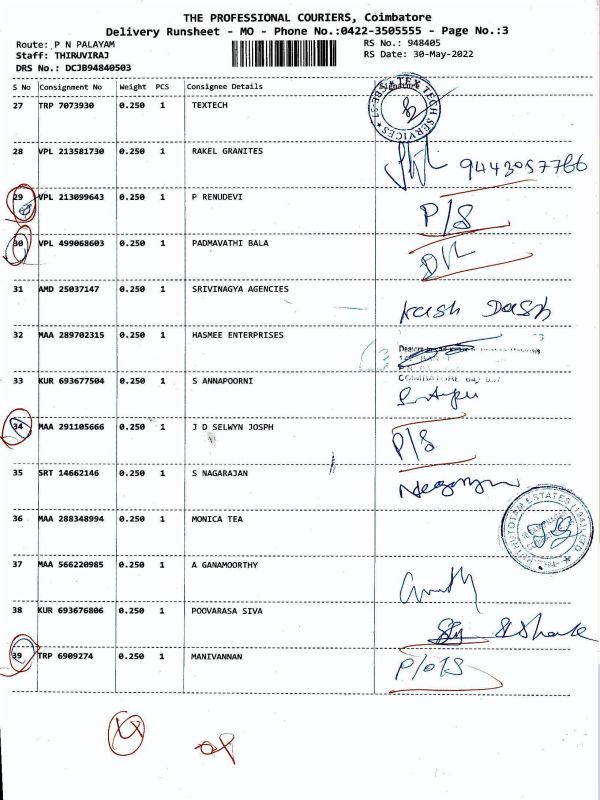 THE PROFESSIONAL COURIERS, Coimbatore
Delivery Runsheet - MO - Phone No.:0422-3505555 - Page No.:3
Route: P N PALAYAM RS No.: 948405
Staff: THIRUVIRAJ RS Date: 30-May-2022
DRS No.: DCJB94840503
S No Consignment No Weight PCS Consignee Details Signature
27 TRP 7073930 0.250 1 TEXTECH
TEX TECH SERVICES
28 VPL 213581730 0.250 1 RAKEL GRANITES 9443057766
29 VPL 213099643 0.250 1 P RENUDEVI P/S
30 VPL 499068603 0.250 1 PADMAVATHI BALA D/L
31 AMD 25037147 0.250 1 SRIVINAGYA AGENCIES Kash Dash
32 MAA 289702315 0.250 1 HASMEE ENTERPRISES
COIMBATORE
33 KUR 693677504 0.250 1 S ANNAPOORNI
34 MAA 291105666 0.250 1 J D SELWYN JOSPH P/S
35 SRT 14662146 0.250 1 S NAGARAJAN
36 MAA 288348994 0.250 1 MONICA TEA
ESTATES (194) LTD
37 MAA 566220985 0.250 1 A GANAMOORTHY
38 KUR 693676806 0.250 1 POOVARASA SIVA
39 TRP 6909274 0.250 1 MANIVANNAN